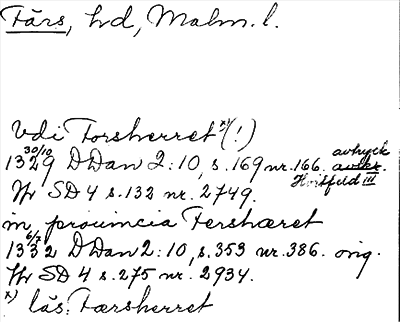 Färs, hd, Malm. l.
Vdi Forsherret x) (!)
30/10 avtryck
1329 DDan 2:10, s. 169 nr. 166. avskr.
Hvitfeld III
Jfr SD 4 s. 132 nr. 2749.
in prouincia Fershæret
6/7
1332 DDan 2:10, s. 353 nr. 386. orig.
Jfr SD 4 s. 275 nr. 2934.
x) läs: Færsherret